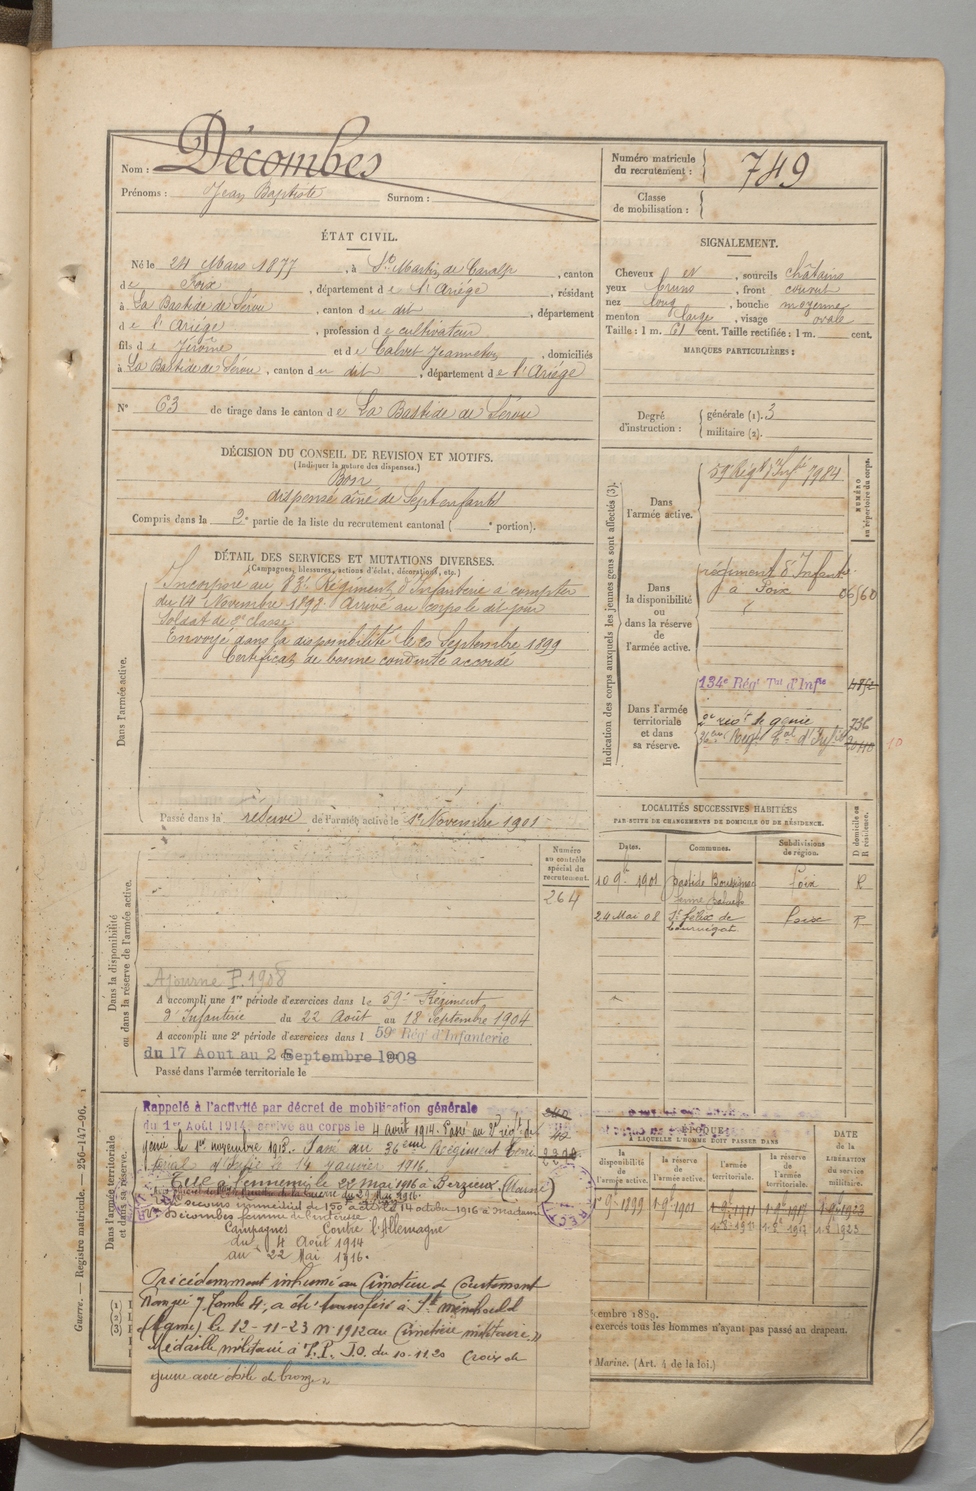 Nom : Décombes
Prénoms : Jean Baptiste Surnom :
Numéro matricule du recrutement : 749
Classe de mobilisation :
ÉTAT CIVIL.
Né le 24 Mars 1877, à St Martin de Caralp, canton
de Foix, département de l'Ariége, résidant
à La Bastide de Sérou, canton du dit, département
de l'Ariége, profession de cultivateur
fils de Jérôme et de Calvet Jeanneton, domiciliés
à La Bastide de Sérou, canton du dit, département de l'Ariége
N° 63 de tirage dans le canton de La Bastide de Sérou
SIGNALEMENT.
Cheveux et, sourcils châtains
yeux bruns, front couvert
nez long, bouche moyenne
menton large, visage ovale
Taille : 1 m. 61 cent. Taille rectifiée : 1 m. cent.
MARQUES PARTICULIÈRES :
Degré d'instruction : générale (1). 3
militaire (2).
DÉCISION DU CONSEIL DE REVISION ET MOTIFS.
(Indiquer la nature des dispenses.)
Bon
dispensé aîné de Sept enfants
Compris dans la 2e partie de la liste du recrutement cantonal ( e portion).
DÉTAIL DES SERVICES ET MUTATIONS DIVERSES.
(Campagnes, blessures, actions d'éclat, décorations, etc.)
Dans l'armée active.
Incorporé au 83e Régiment d'Infanterie à compter
du 14 Novembre 1898 Arrivé au corps le dit jour
Soldat de 2e classe
Envoyé dans la disponibilité le 20 Septembre 1899
Certificat de bonne conduite accordé
Passé dans la réserve de l'armée active le 1er Novembre 1901
Indication des corps auxquels les jeunes gens sont affectés (3).
NUMÉRO au répertoire du corps.
Dans l'armée active.
59 Régt d'Infie 7984
Dans la disponibilité ou dans la réserve de l'armée active.
régiment d'Infant
à Foix 06/60
Dans l'armée territoriale et dans sa réserve.
134e Régt Tal d'Infie
2e regt de génie 736
36eme Regt Tal d'Infie
10
LOCALITÉS SUCCESSIVES HABITÉES
PAR SUITE DE CHANGEMENTS DE DOMICILE OU DE RÉSIDENCE.
Dates. Communes. Subdivisions de région. D domicile ou R résidence.
1901 Foix R
24 Mai 08 St Félix de Foix R
Dans la disponibilité ou dans la réserve de l'armée active.
Numéro au contrôle spécial du recrutement.
264
Ajourné P. 1908
A accompli une 1re période d'exercices dans le 59e Régiment
d'Infanterie du 22 Août au 18 Septembre 1904
A accompli une 2e période d'exercices dans l 59e Régt d'Infanterie
du 17 Aout au 2 Septembre 1908
Passé dans l'armée territoriale le
Dans l'armée territoriale et dans sa réserve.
Rappelé à l'activité par décret de mobilisation générale
du 1er Août 1914, arrivé au corps le 4 août 1914. Passé au 2e régt de
génie le 1er novembre 1915. Passé au 36eme Régiment Terri
torial d'Infie le 14 janvier 1916.
Tué à l'ennemi le 22 mai 1916 à Berzieux (Marne)
secours immédiat de 150f 14 octobre 1916 à Madame
Décombes
Campagnes Contre l'Allemagne
du 4 Août 1914
au 22 Mai 1916.
Précédemment inhumé au Cimetière de Courtemont
Rangée 7 Tombe 4, a été transféré à Ste menehould
(Marne) le 12-11-23 n° 1912 au Cimetière militaire
Médaille militaire à T.P. J.O. du 10-11.20 Croix de
guerre avec étoile de bronze
ÉPOQUE
À LAQUELLE L'HOMME DOIT PASSER DANS
la disponibilité de l'armée active. la réserve de l'armée active. l'armée territoriale. la réserve de l'armée territoriale. DATE de la LIBÉRATION du service militaire.
1899 1901 1911 1917 1923
cembre 1889.
exercés tous les hommes n'ayant pas passé au drapeau.
Marine. (Art. 4 de la loi.)
Guerre. — Registre matricule. — 256-147-96.